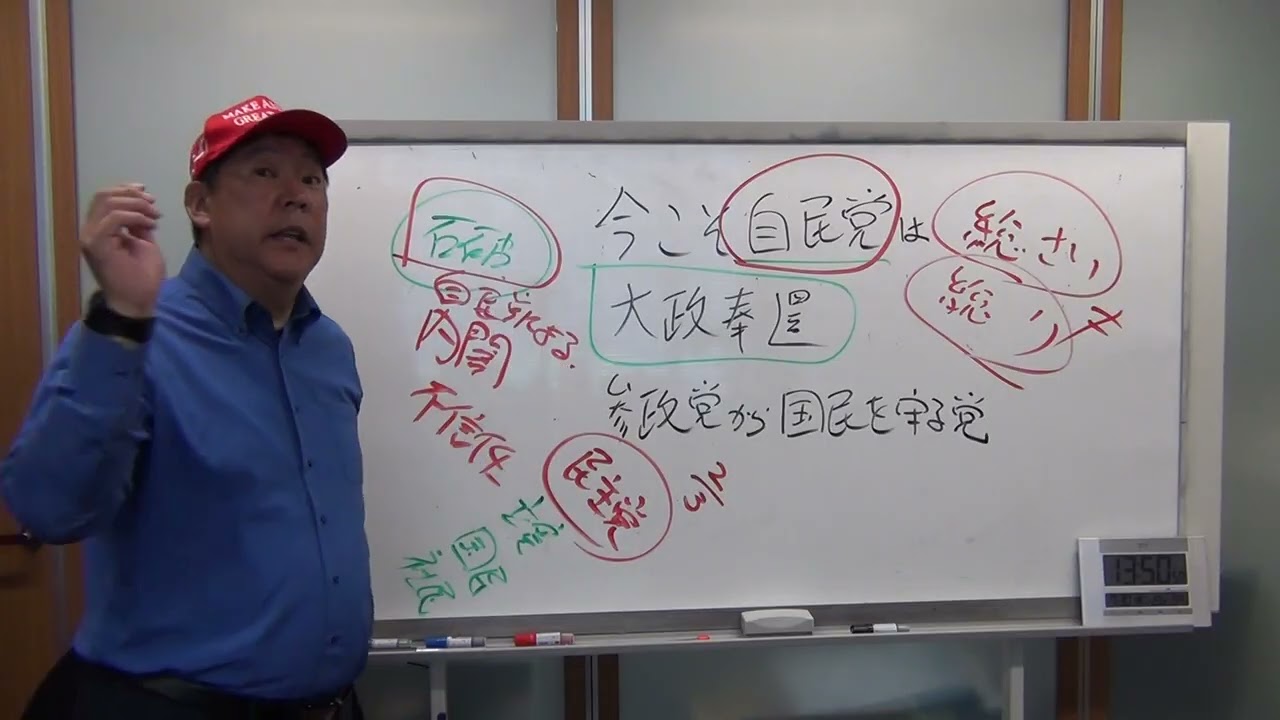 MAKE A
GREA
今こそ自民党は
総さい
大政奉還
総り
参政党から国民を守る党
石破
自民党による
内閣
不信任
民主党
2/3
立憲
国民
社民
13:50